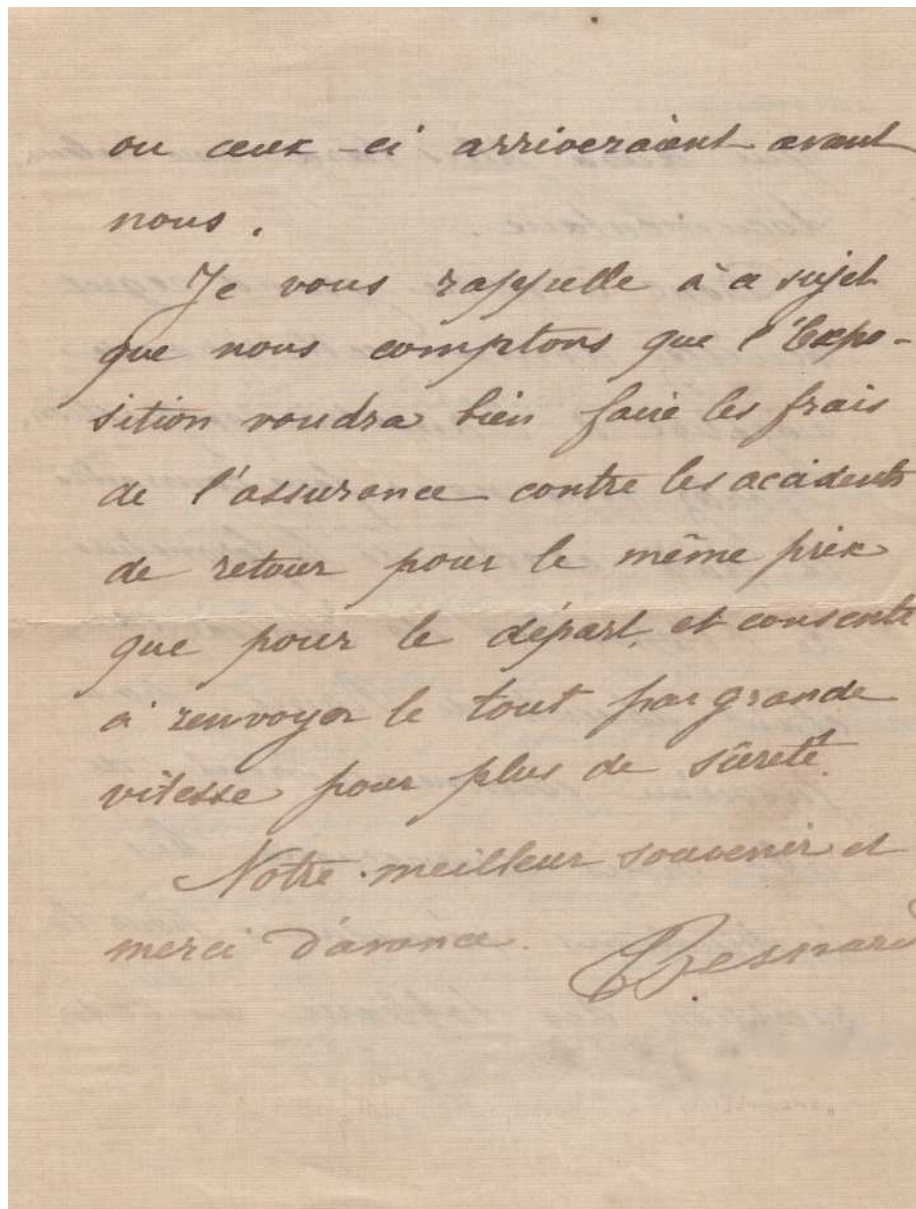 ou ceux-ci arriveraient avant
nous.
Je vous rappelle à ce sujet
que nous comptons que l'Expo-
sition voudra bien faire les frais
de l'assurance contre les accidents
de retour pour le même prix
que pour le départ, et consente
à renvoyer le tout par grande
vitesse pour plus de sûreté.
Notre meilleur souvenir et
merci d'avance.
Besnard